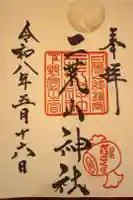 奉拝
二荒山神社
令和八年五月十六日